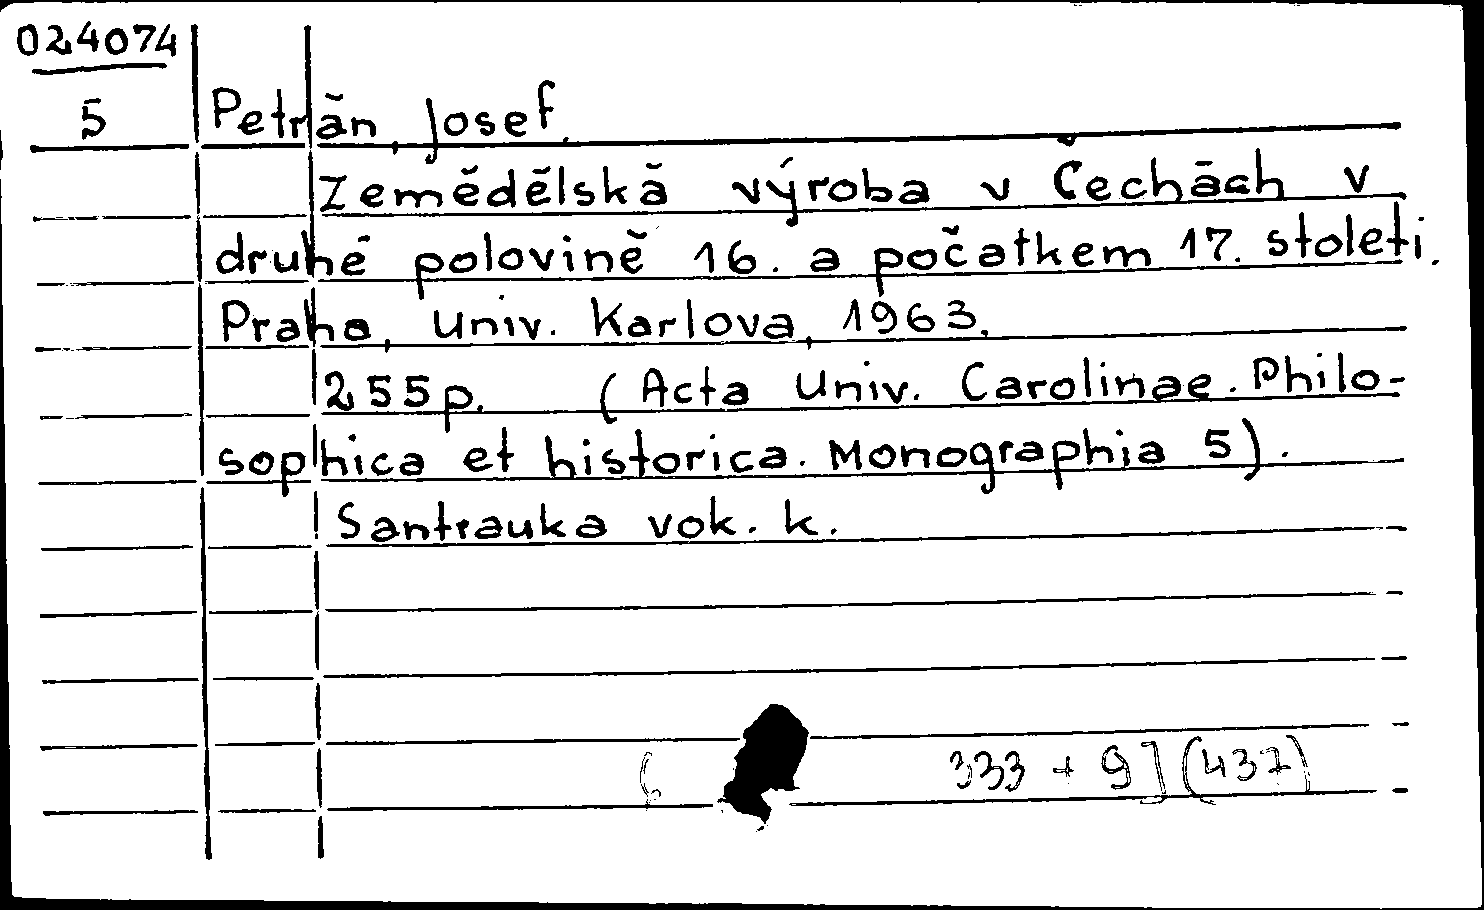 024074
5 Petrăn, Josef.
Zemědělskă výroba v Čechăch v
druhé polovině 16. a počatkem 17. stoleti.
Praha, Univ. Karlova, 1963.
255p. (Acta Univ. Carolinae. Philo-
sophica et historica. Monographia 5).
Santrauka vok. k.
333 + 9](437)